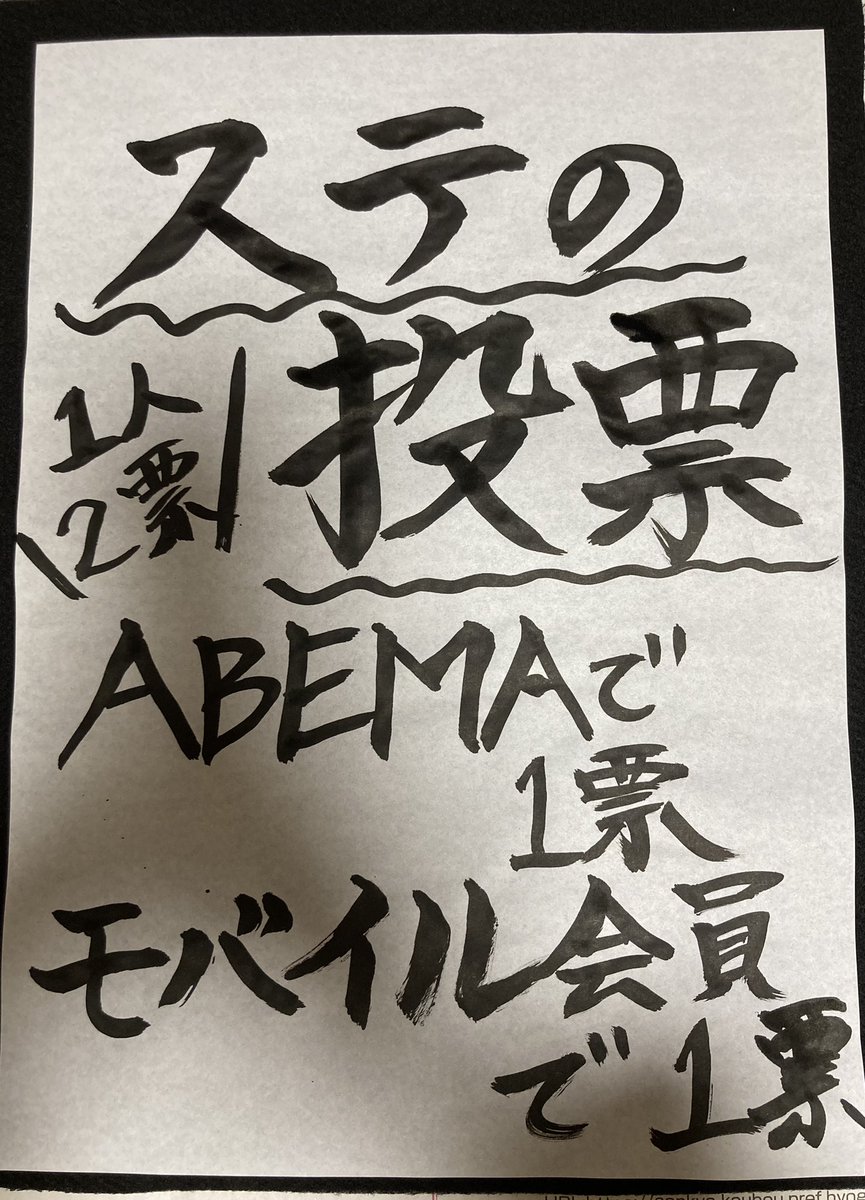 ステの
投票
\1人
2票/
ABEMAで
1票
モバイル会員
で1票